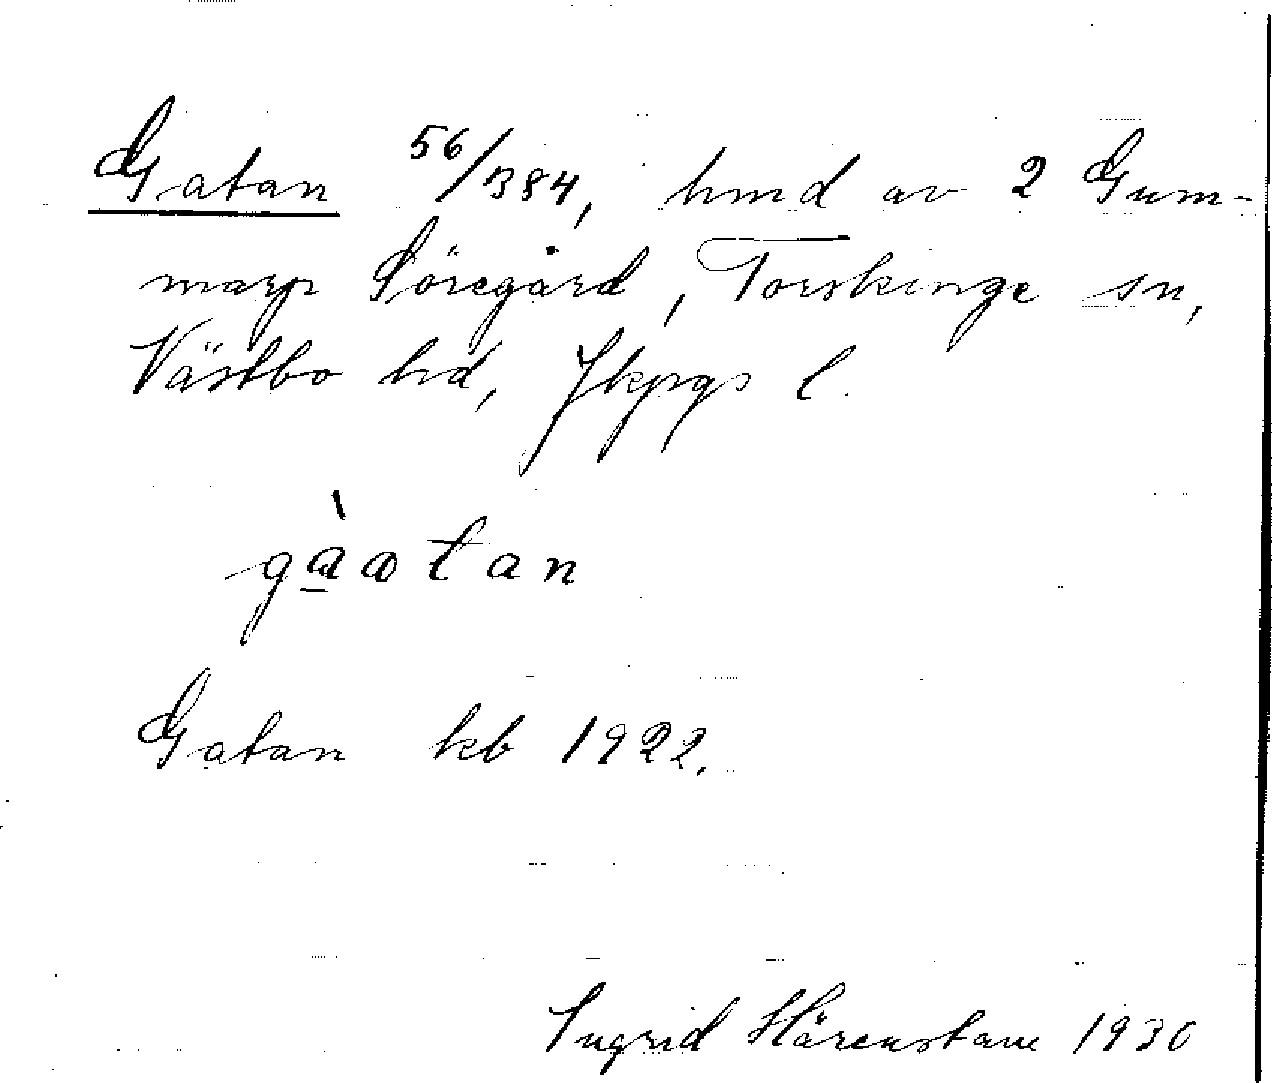 Gatan 56/1384, hmd av 2 Gum-
marp Söregård, Torskinge sn,
Västbo hd, Jkpgs l.
gàatan
Gatan kb 1922.
Ingrid Härenstam 1930